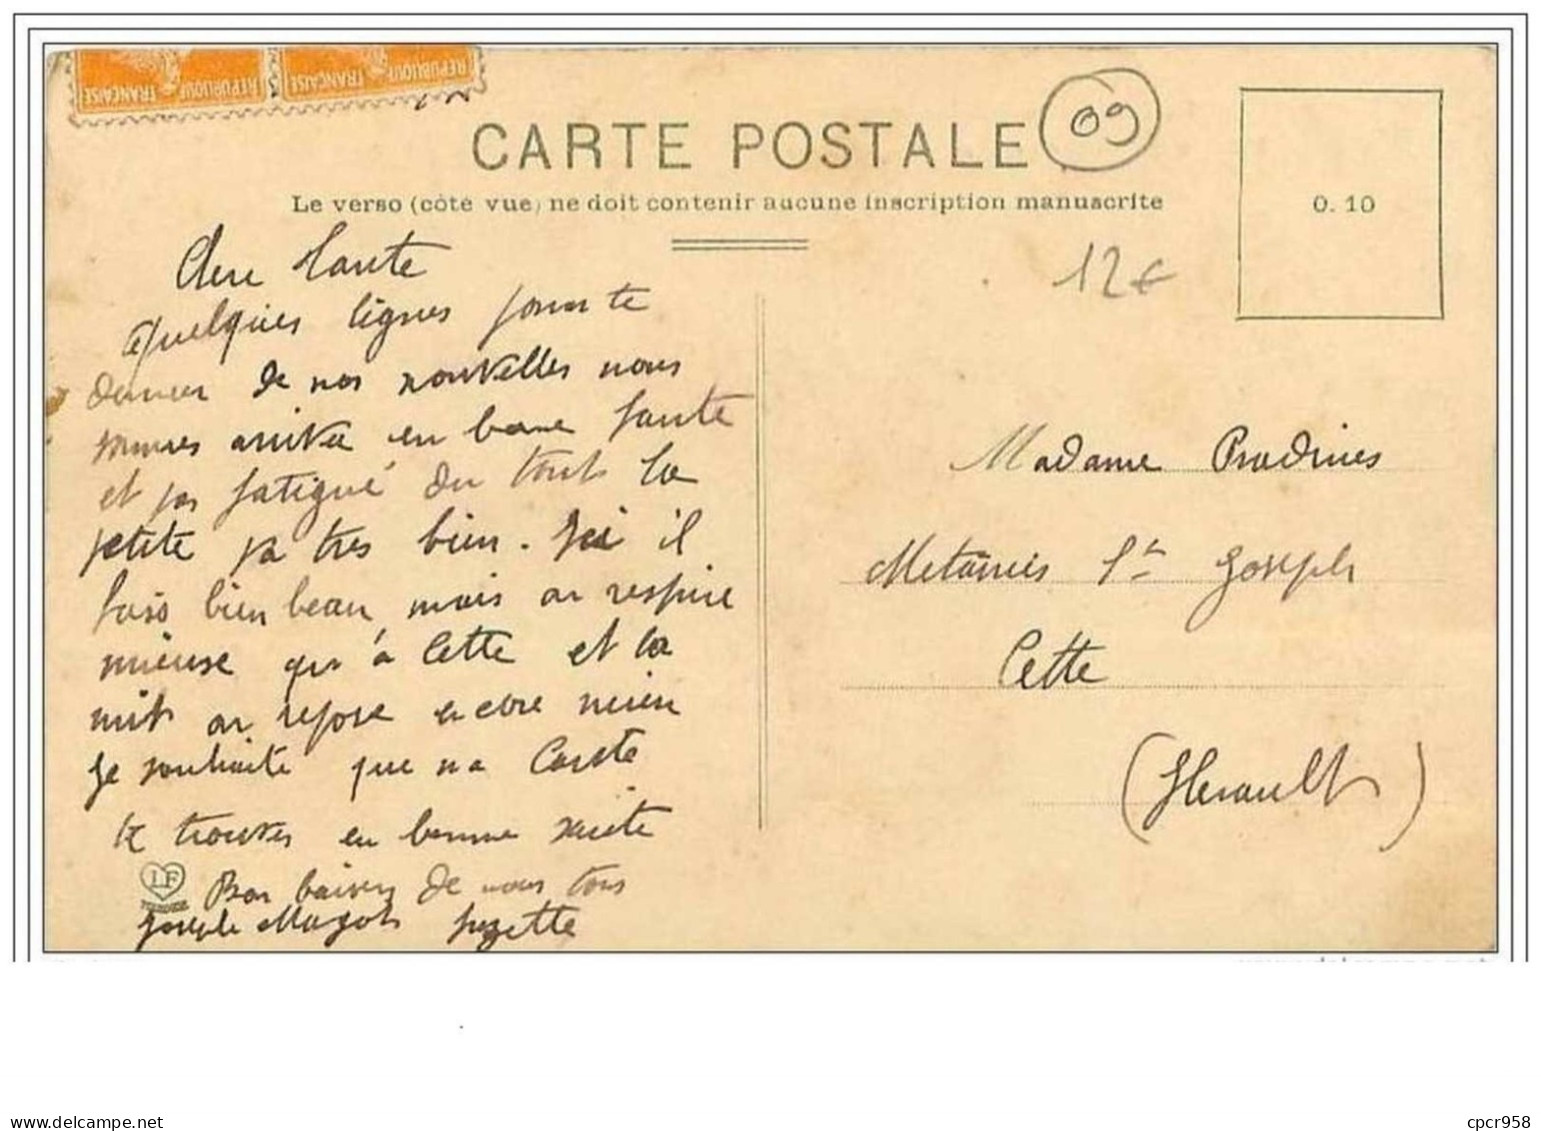 REPUBLIQUE FRANCAISE REPUBLIQUE FRANCAISE
CARTE POSTALE
09
Le verso (côté vue) ne doit contenir aucune inscription manuscrite
0.10
12€
Chere Tante
Quelques lignes pour te
donner de nos nouvelles nous
sommes arrivée en bonne sante
et pas fatigué du tout la
petite va tres bien. Ici il
fais bien beau mais on respire
mieuse qu'à Cette et la
nuit on repose encore mieu
Je souhaite que ma Carte
te trouves en bonne sante
LF
Bon baisers de nous tous
Joseph Margot Suzette
Madame Pradines
Metairies St Joseph
Cette
(Herault)
cpcr958